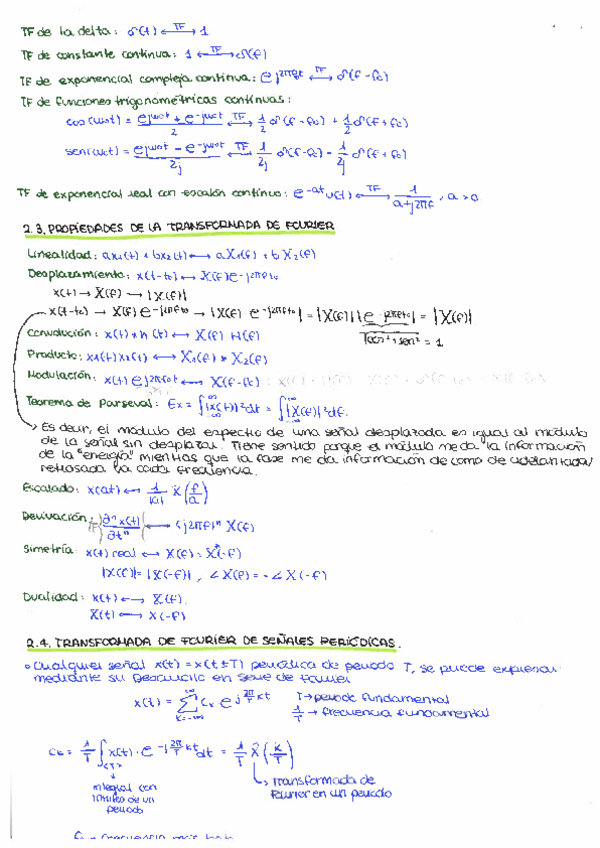 TF de la delta: δ(t) ←TF→ 1
TF de constante continua: 1 ←TF→ δ(f)
TF de exponencial compleja continua: e^{j2πf₀t} ←TF→ δ(f-f₀)
TF de funciones trigonométricas continuas:
cos(ω₀t) = (e^{jω₀t} + e^{-jω₀t})/2 ←TF→ 1/2 δ(f-f₀) + 1/2 δ(f+f₀)
sen(ω₀t) = (e^{jω₀t} - e^{-jω₀t})/2j ←TF→ 1/2j δ(f-f₀) - 1/2j δ(f+f₀)
TF de exponencial real con escalón continuo: e^{-at}u(t) ←TF→ 1/(a+j2πf), a>0
2.3. PROPIEDADES DE LA TRANSFORMADA DE FOURIER
Linealidad: ax₁(t) + bx₂(t) ←→ aX₁(f) + bX₂(f)
Desplazamiento: x(t-t₀) ←→ X(f)e^{-j2πft₀}
x(t) → X(f) → |X(f)|
x(t-t₀) → X(f)e^{-j2πft₀} → |X(f) e^{-j2πft₀}| = |X(f)||e^{-j2πft₀}| = |X(f)|
√cos²+sen² = 1
Convolución: x(t)*h(t) ←→ X(f) H(f)
Producto: x₁(t)x₂(t) ←→ X₁(f) * X₂(f)
Modulación: x(t)e^{j2πf₀t} ←→ X(f-f₀)
Teorema de Parseval: Ex = ∫_{-∞}^{∞}|x(t)|²dt = ∫_{-∞}^{∞}|X(f)|²df.
Es decir, el módulo del espectro de una señal desplazada es igual al módulo
de la señal sin desplazar. Tiene sentido porque el módulo me da la información
de la "energía" mientras que la fase me da información de como de adelantada/
retrasada va cada frecuencia.
Escalado: x(at) ←→ 1/|a| X(f/a)
Derivación: TF{∂ⁿx(t)/∂tⁿ} ←→ (j2πf)ⁿ X(f)
Simetría: x(t) real ←→ X(f) = X*(-f)
|X(f)| = |X(-f)|, ∠X(f) = -∠X(-f)
Dualidad: x(t) ←→ X(f).
X(t) ←→ x(-f)
2.4. TRANSFORMADA DE FOURIER DE SEÑALES PERIÓDICAS.
∘ Cualquier señal x(t) = x(t±T) periódica de periodo T, se puede expresar
mediante su Desarrollo en Serie de Fourier
x(t) = Σ_{k=-∞}^{+∞} Cₖ e^{j 2π/T kt} T → periodo fundamental
1/T → frecuencia fundamental
Cₖ = 1/T ∫_{<T>} x(t)·e^{-j 2π/T kt} dt = 1/T X̂(k/T)
integral con
límites de un
periodo
Transformada de
Fourier en un periodo